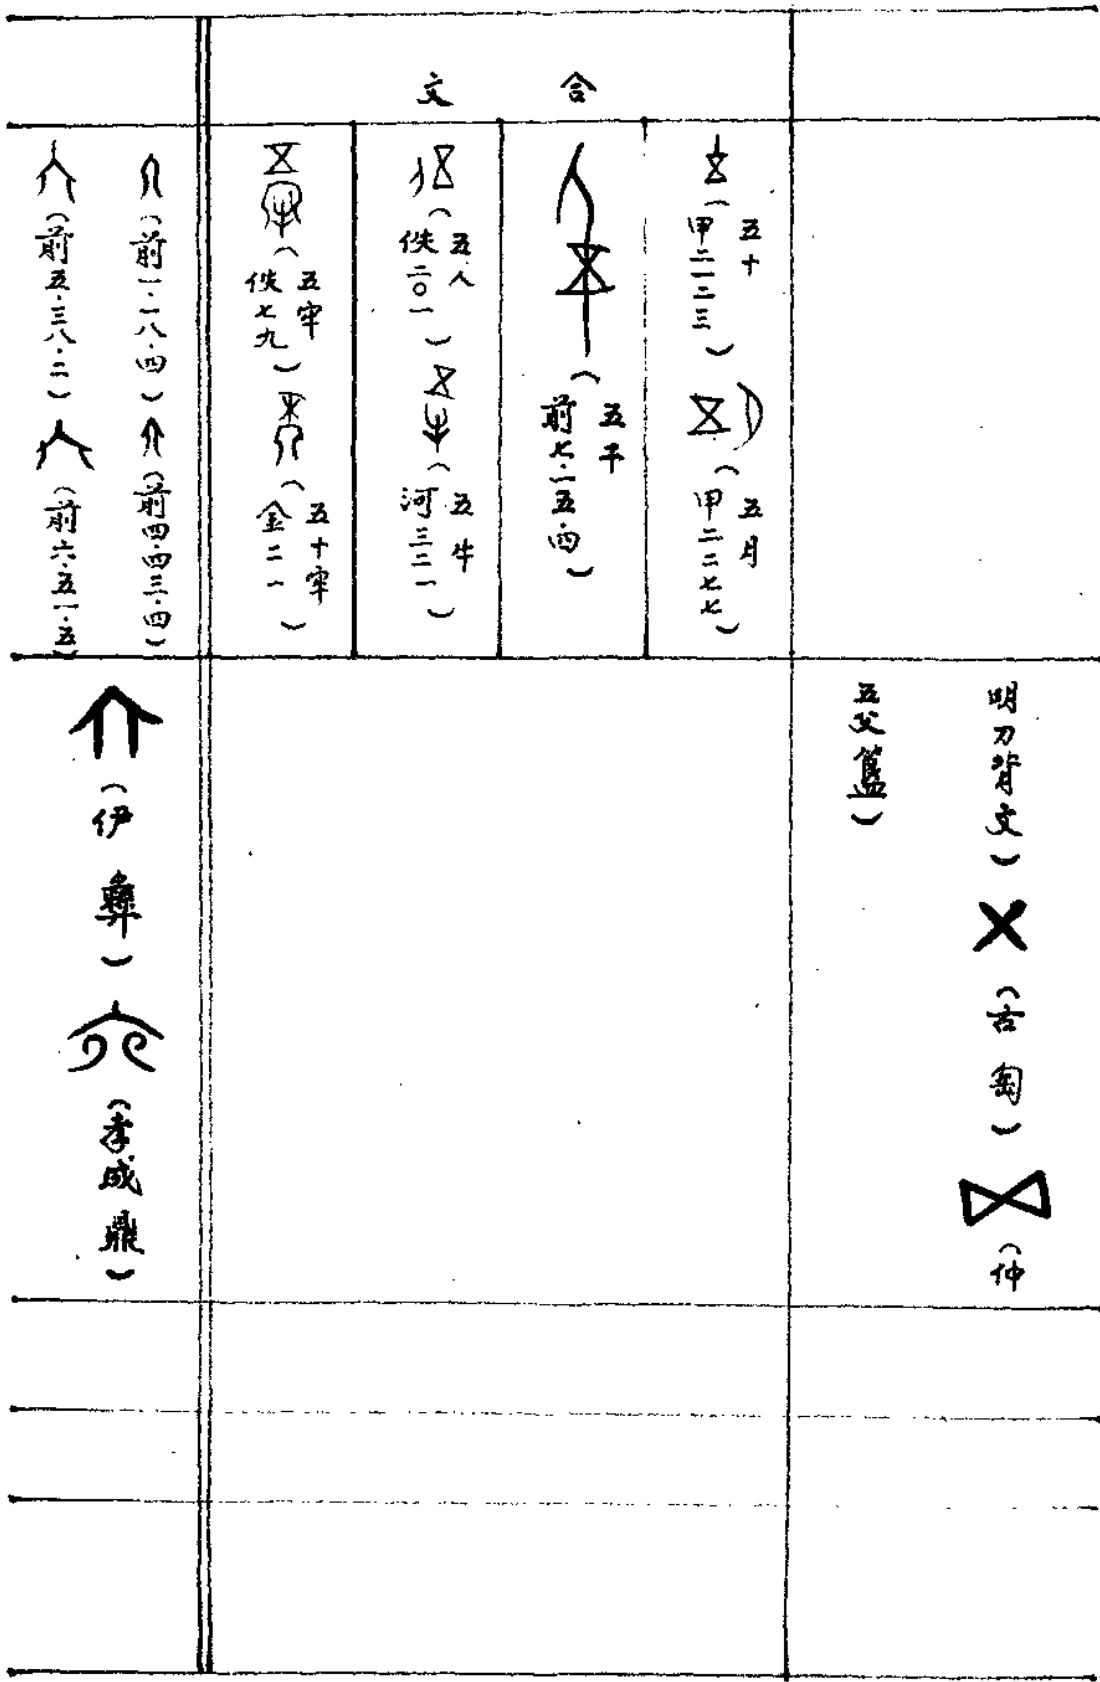 合文
（甲二一二三）五十
（甲二二七七）五月
（前七·一五·四）五千
（佚二〇一）五人
（河三二一）五牛
（佚七九）五牢
（金二一）五十牢
（前一·一八·四）
（前四·四三·四）
（前五·三八·二）
（前六·五一·五）
明刀背文）
（古匋）
（仲
五父簋）
（伊彝）
（李成鼎）